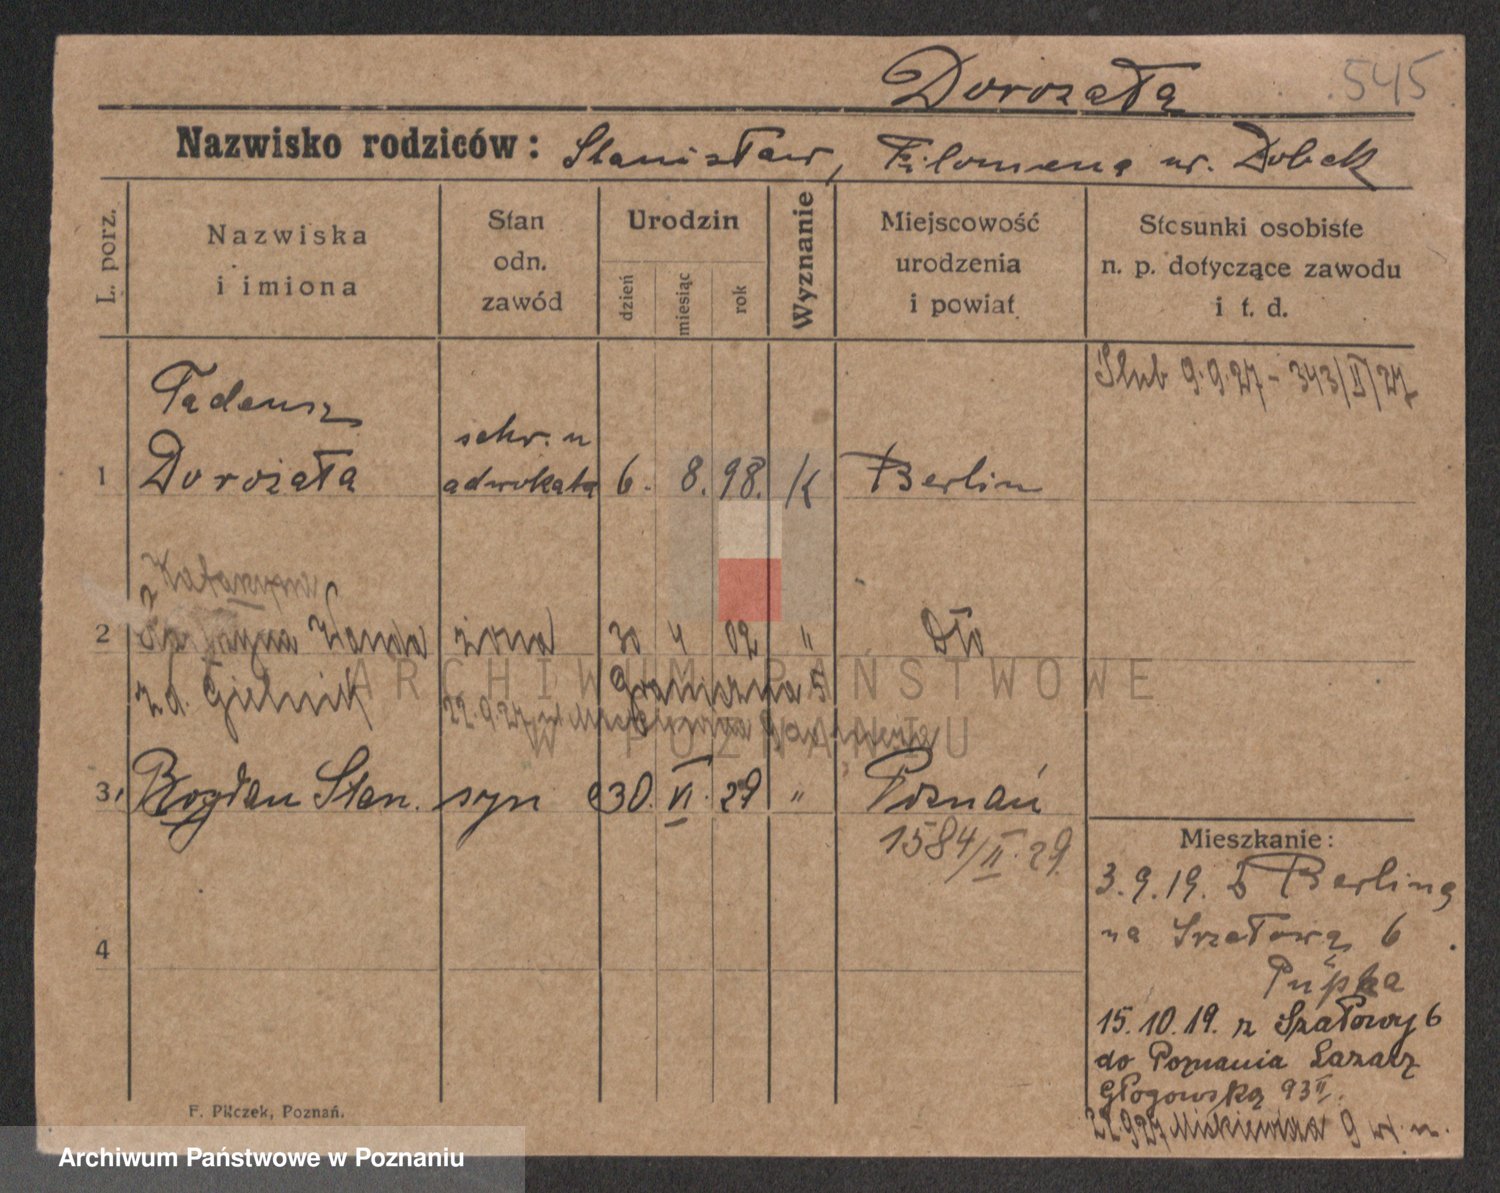 Dorozała 545
Nazwisko rodziców: Stanisław, Filomena ur. Dobek
L. porz.
Nazwiska
i imiona
Stan
odn.
zawód
Urodzin
dzień
miesiąc
rok
Wyznanie
Miejscowość
urodzenia
i powiat
Stosunki osobiste
n. p. dotyczące zawodu
i t. d.
Ślub 9.9.27 - 343/II/27
Tadeusz
1 Dorozała
sekr. u
adwokata
6. 8. 98. K Berlin
Katarzyna
2 Wanda żona 30 4 02 "
z d. Gielnik
Graniczna 5
22.9.27
3, Bogdan Stan. syn 30. VI. 29 " Poznań
1584/II.29.
4
Mieszkanie:
3.9.19. z Berlina
na Szałową 6
15.10.19. z Szałowy 6
do Poznania Łazarz
Głogowska 93 II.
22.9.27 Mickiewicza 9
F. Pilczek, Poznań.
ARCHIWUM PAŃSTWOWE
W POZNANIU
Archiwum Państwowe w Poznaniu